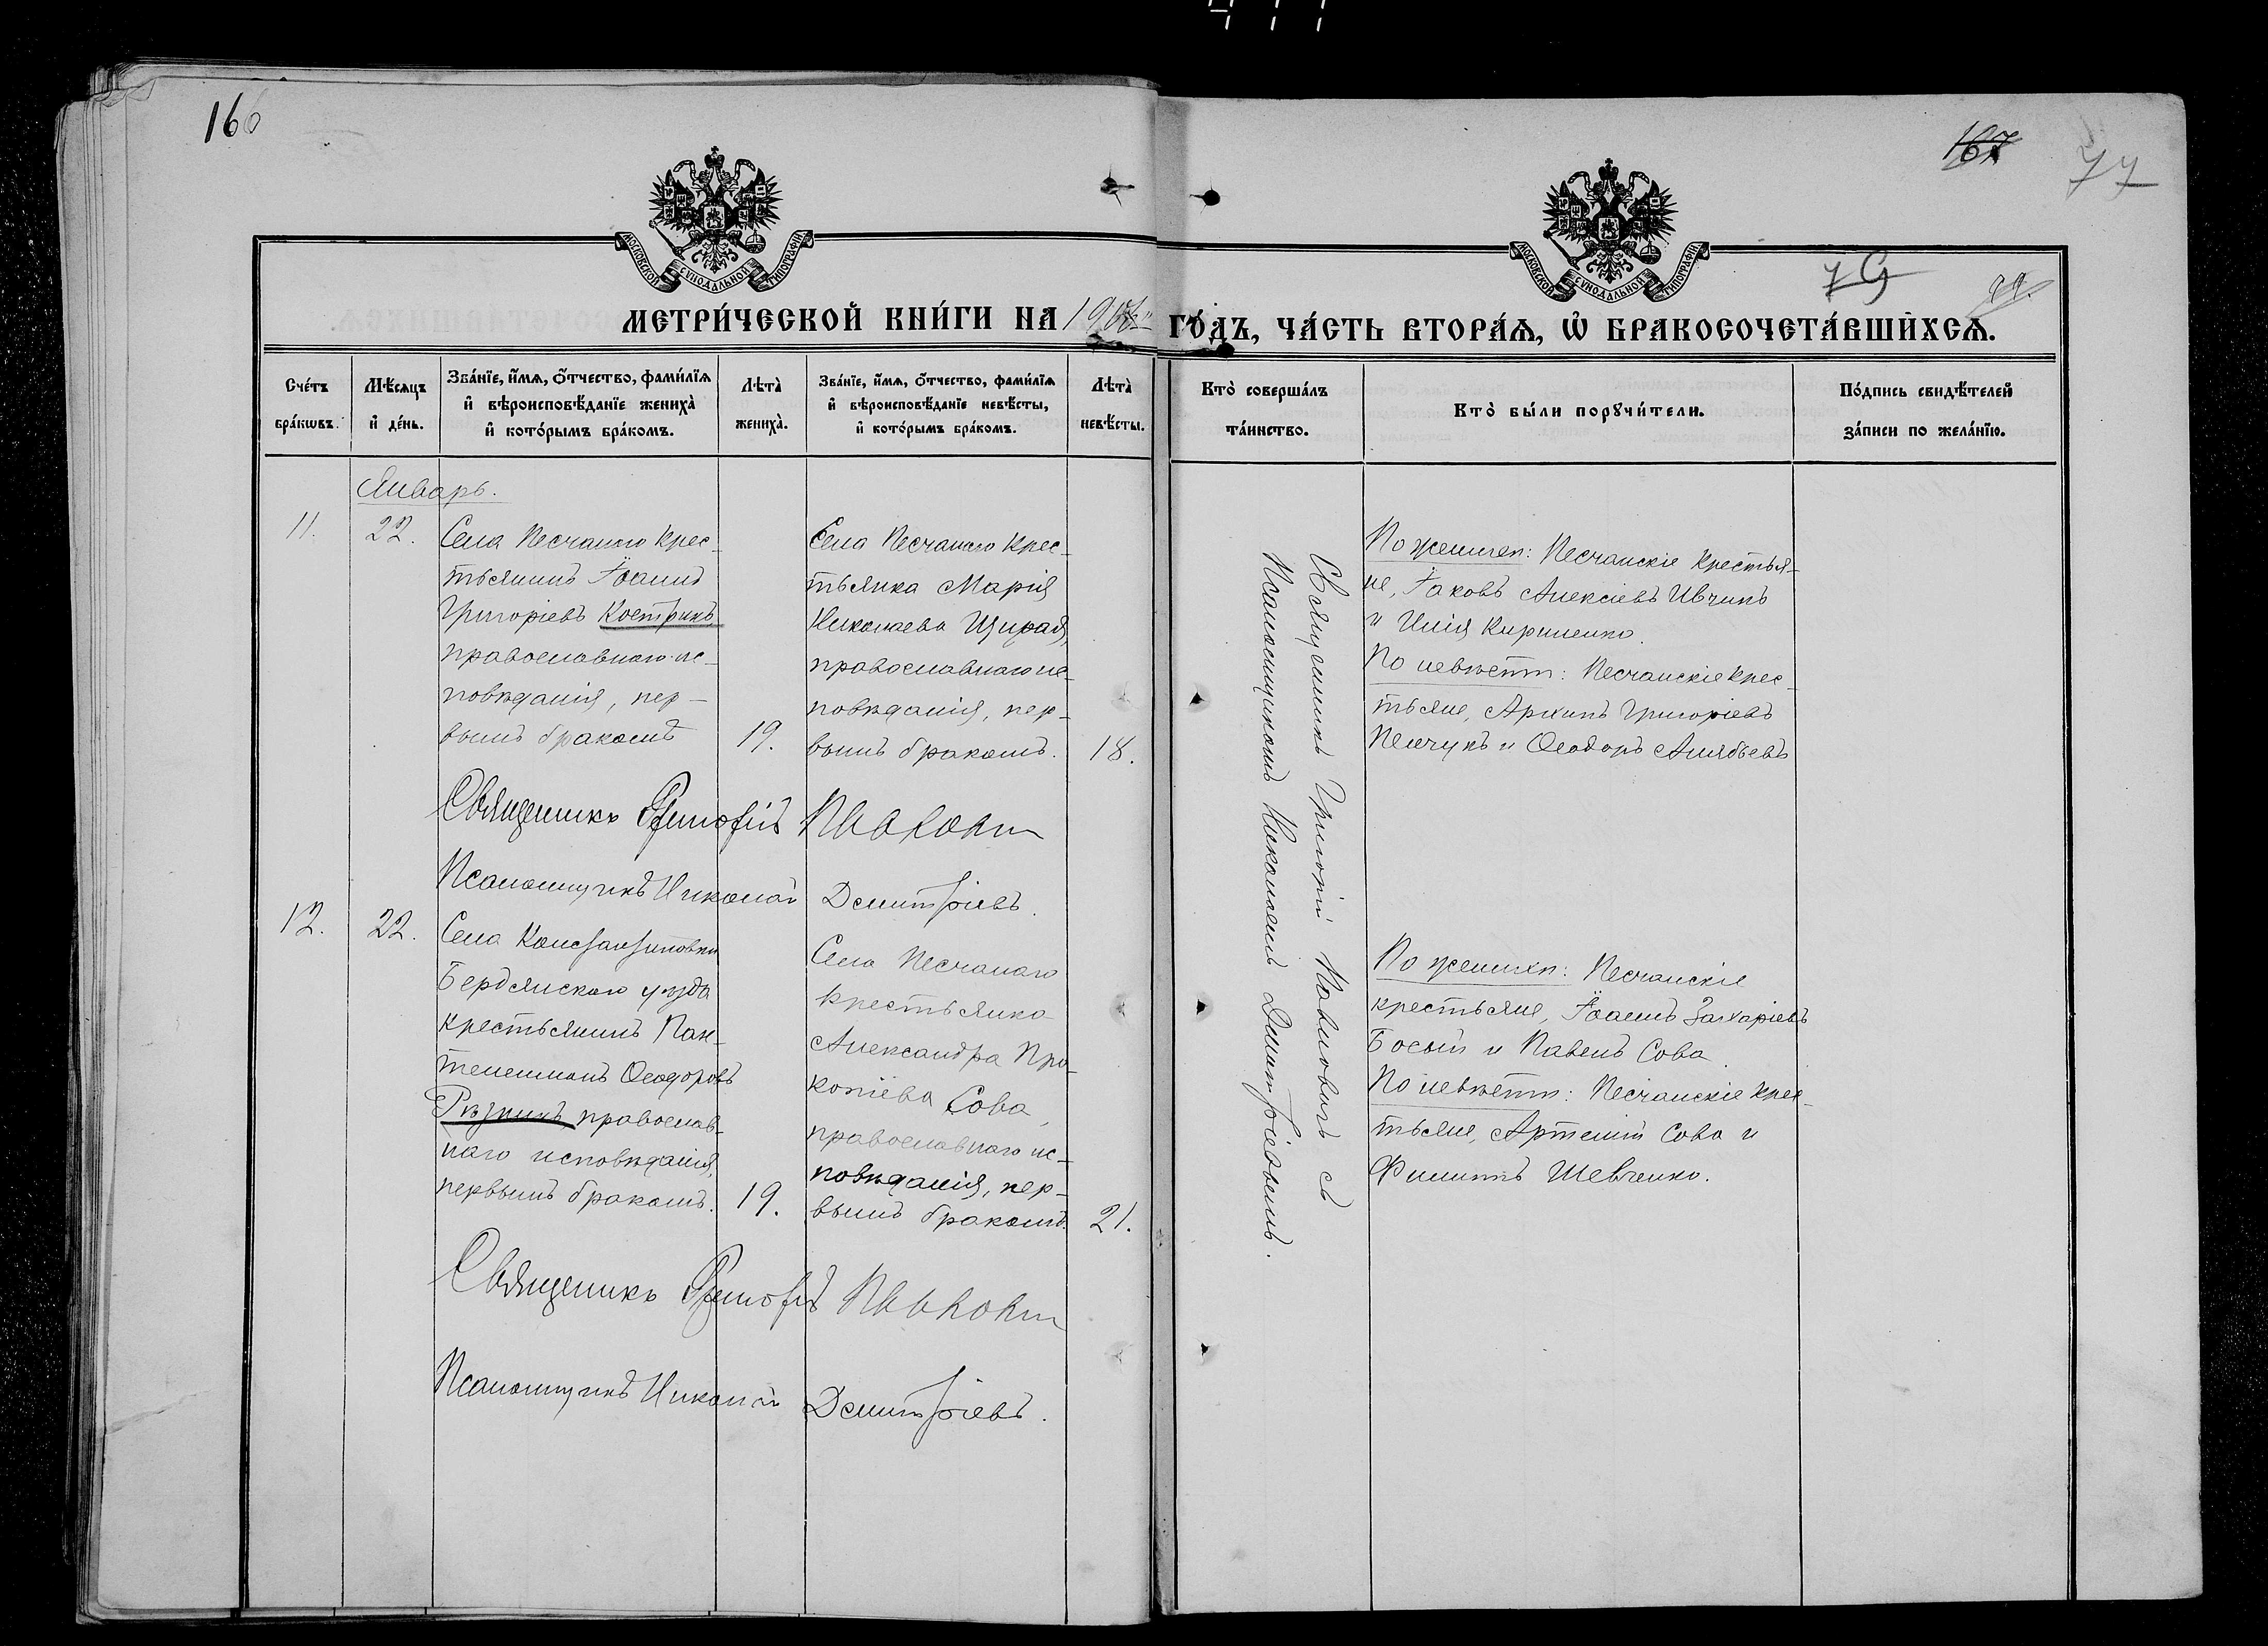 166
167
77
МОСКОВСКОЙ СѴНОДАЛЬНОЙ ТИПОГРАФІИ
МОСКОВСКОЙ СѴНОДАЛЬНОЙ ТИПОГРАФІИ
79
МЕТРИ́ЧЕСКОЙ КНИ́ГИ НА
ГО́ДЪ, ЧА́СТЬ ВТОРА́Ѧ, Ѡ҆ БРАКОСОЧЕТА́ВШИХСѦ.
Сче́тъ
бра́кѡвъ.
Мѣ́сяцъ
и҆ де́нь.
Зва́нїе, и҆́мѧ, ѻ҆́тчество, фами́лїѧ
и҆ вѣроисповѣ́данїе жениха̀
и҆ кото́рымъ бра́комъ.
Лѣта̀
жениха̀.
Зва́нїе, и҆́мѧ, ѻ҆́тчество, фами́лїѧ
и҆ вѣроисповѣ́данїе невѣ́сты,
и҆ кото́рымъ бра́комъ.
Лѣта̀
невѣ́сты.
Кто̀ соверша́лъ
та́инство.
Кто̀ бы́ли порꙋчи́тели.
По́дпись свидѣ́телей
за́писи по жела́нїю.
Январь.
11.
22.
Села Песчанаго крес-
тьянинъ Іоаннъ
Григоріевъ Кострикъ
православнаго ис-
повѣданія, пер-
вымъ бракомъ
19.
Села Песчанаго крес-
тьянка Марія
Николаева Щирая,
православнаго ис-
повѣданія, пер-
вымъ бракомъ.
18.
Священникъ Григорій Павловичъ съ
Псаломщикомъ Николаемъ Димитріевымъ.
По женихѣ: Песчанскіе крестья-
не, Іаковъ Алексіевъ Ивчинъ
и Илія Кириленко.
По невѣстѣ: Песчанскіе крес-
тьяне, Архипъ Григоріевъ
и Ѳеодоръ
Священникъ Григорій
Псаломщикъ Николай Димитріевъ.
12.
22.
Села Константиновки
Бердянскаго уѣзда
крестьянинъ Пан-
телеимонъ Ѳеодоровъ
Рѣзникъ, православ-
наго исповѣданія,
первымъ бракомъ.
19.
Села Песчанаго
крестьянка
Александра Про-
копіева Сова,
православнаго ис-
повѣданія, пер-
вымъ бракомъ.
21.
По женихѣ: Песчанскіе
крестьяне, Іоаннъ Захаріевъ
Босый и Павелъ Сова.
По невѣстѣ: Песчанскіе крес-
тьяне, Артемій Сова и
Филиппъ Шевченко.
Священникъ Григорій
Псаломщикъ Николай Димитріевъ.